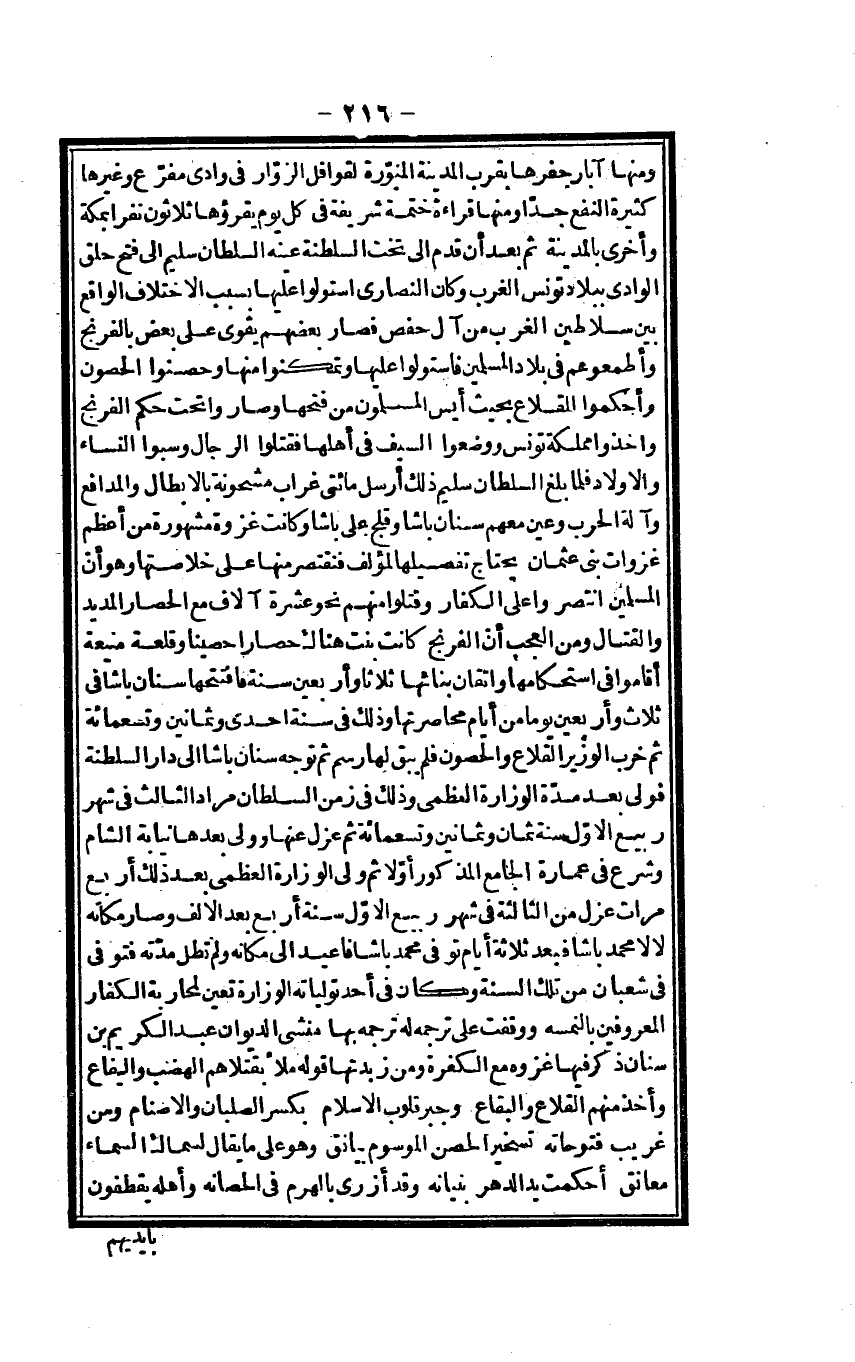 - ٢١٦ -
ومنها آبار حفرها بقرب المدينة المنوّرة لقوافل الزوّار فى وادى مفرّح وغيرها
كثيرة النفع جدّا ومنها قراءة ختمة شريفة فى كل يوم يقرؤها ثلاثون نفرا بمكة
وأخرى بالمدينة ثم بعد أن قدم الى تخت السلطنة عينه السلطان سليم الى فتح حلق
الوادى ببلاد تونس الغرب وكان النصارى استولوا عليها بسبب الاختلاف الواقع
بين سلاطين الغرب من آل حفص فصار بعضهم يقوى على بعض بالفرنج
وأطمعوهم فى بلاد المسلمين فاستولوا عليها وتمكنوا منها وحصنوا الحصون
وأحكموا القلاع بحيث أيس المسلمون من فتحها وصاروا تحت حكم الفرنج
واخذوا مملكة تونس ووضعوا السيف فى أهلها فقتلوا الرجال وسبوا النساء
والاولاد فلما بلغ السلطان سليم ذلك أرسل مائتى غراب مشحونة بالابطال والمدافع
وآلة الحرب وعين معهم سنان باشا وقلج على باشا وكانت غزوة مشهورة من أعظم
غزوات بنى عثمان يحتاج تفصيلها لمؤلف فنقتصر منها على خلاصتها وهو أن
المسلمين انتصروا على الكفار وقتلوا منهم نحو عشرة آلاف مع الحصار المديد
والقتال ومن العجب أنّ الفرنج كانت بنت هناك حصارا حصينا وقلعة منيعة
أقاموا فى استحكامها واتقان بنائها ثلاثا وأربعين سنة فافتتحها سنان باشا فى
ثلاث وأربعين يوما من أيام محاصرتها وذلك فى سنة احدى وثمانين وتسعمائة
ثم خرب الوزير القلاع والحصون فلم يبق لها رسم ثم توجه سنان باشا الى دار السلطنة
فولى بعد مدّة الوزارة العظمى وذلك فى زمن السلطان مراد الثالث فى شهر
ربيع الاوّل سنة ثمان وثمانين وتسعمائة ثم عزل عنها وولى بعدها نيابة الشام
وشرع فى عمارة الجامع المذكور أوّلا ثم ولى الوزارة العظمى بعد ذلك أربع
مرات عزل من الثالثة فى شهر ربيع الاوّل سنة أربع بعد الالف وصار مكانه
لالا محمد باشا فبعد ثلاثة أيام توفى محمد باشا فاعيد الى مكانه ولم تطل مدّته فتوفى
فى شعبان من تلك السنة وكان فى أحد تولياته الوزارة تعين لمحاربة الكفار
المعروفين بالنمسه ووقفت على ترجمه له ترجمه بها منشى الديوان عبد الكريم بن
سنان ذكر فيها غزوه مع الكفرة ومن زبدتها قوله ملأ بقتلاهم الهضب واليفاع
وأخذ منهم القلاع والبقاع وجبر قلوب الاسلام بكسر الصلبان والاصنام ومن
غريب فتوحاته تسخير الحصن الموسوم بيانق وهو على ما يقال لسماك السماء
معانق أحكمت يد الدهر بنيانه وقد أزرى بالهرم فى الحصانه وأهله يقطفون
بايديهم